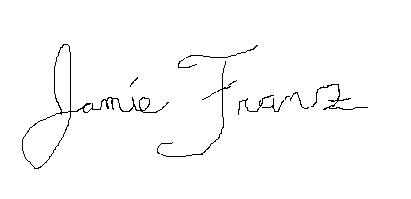 Jamie Franz